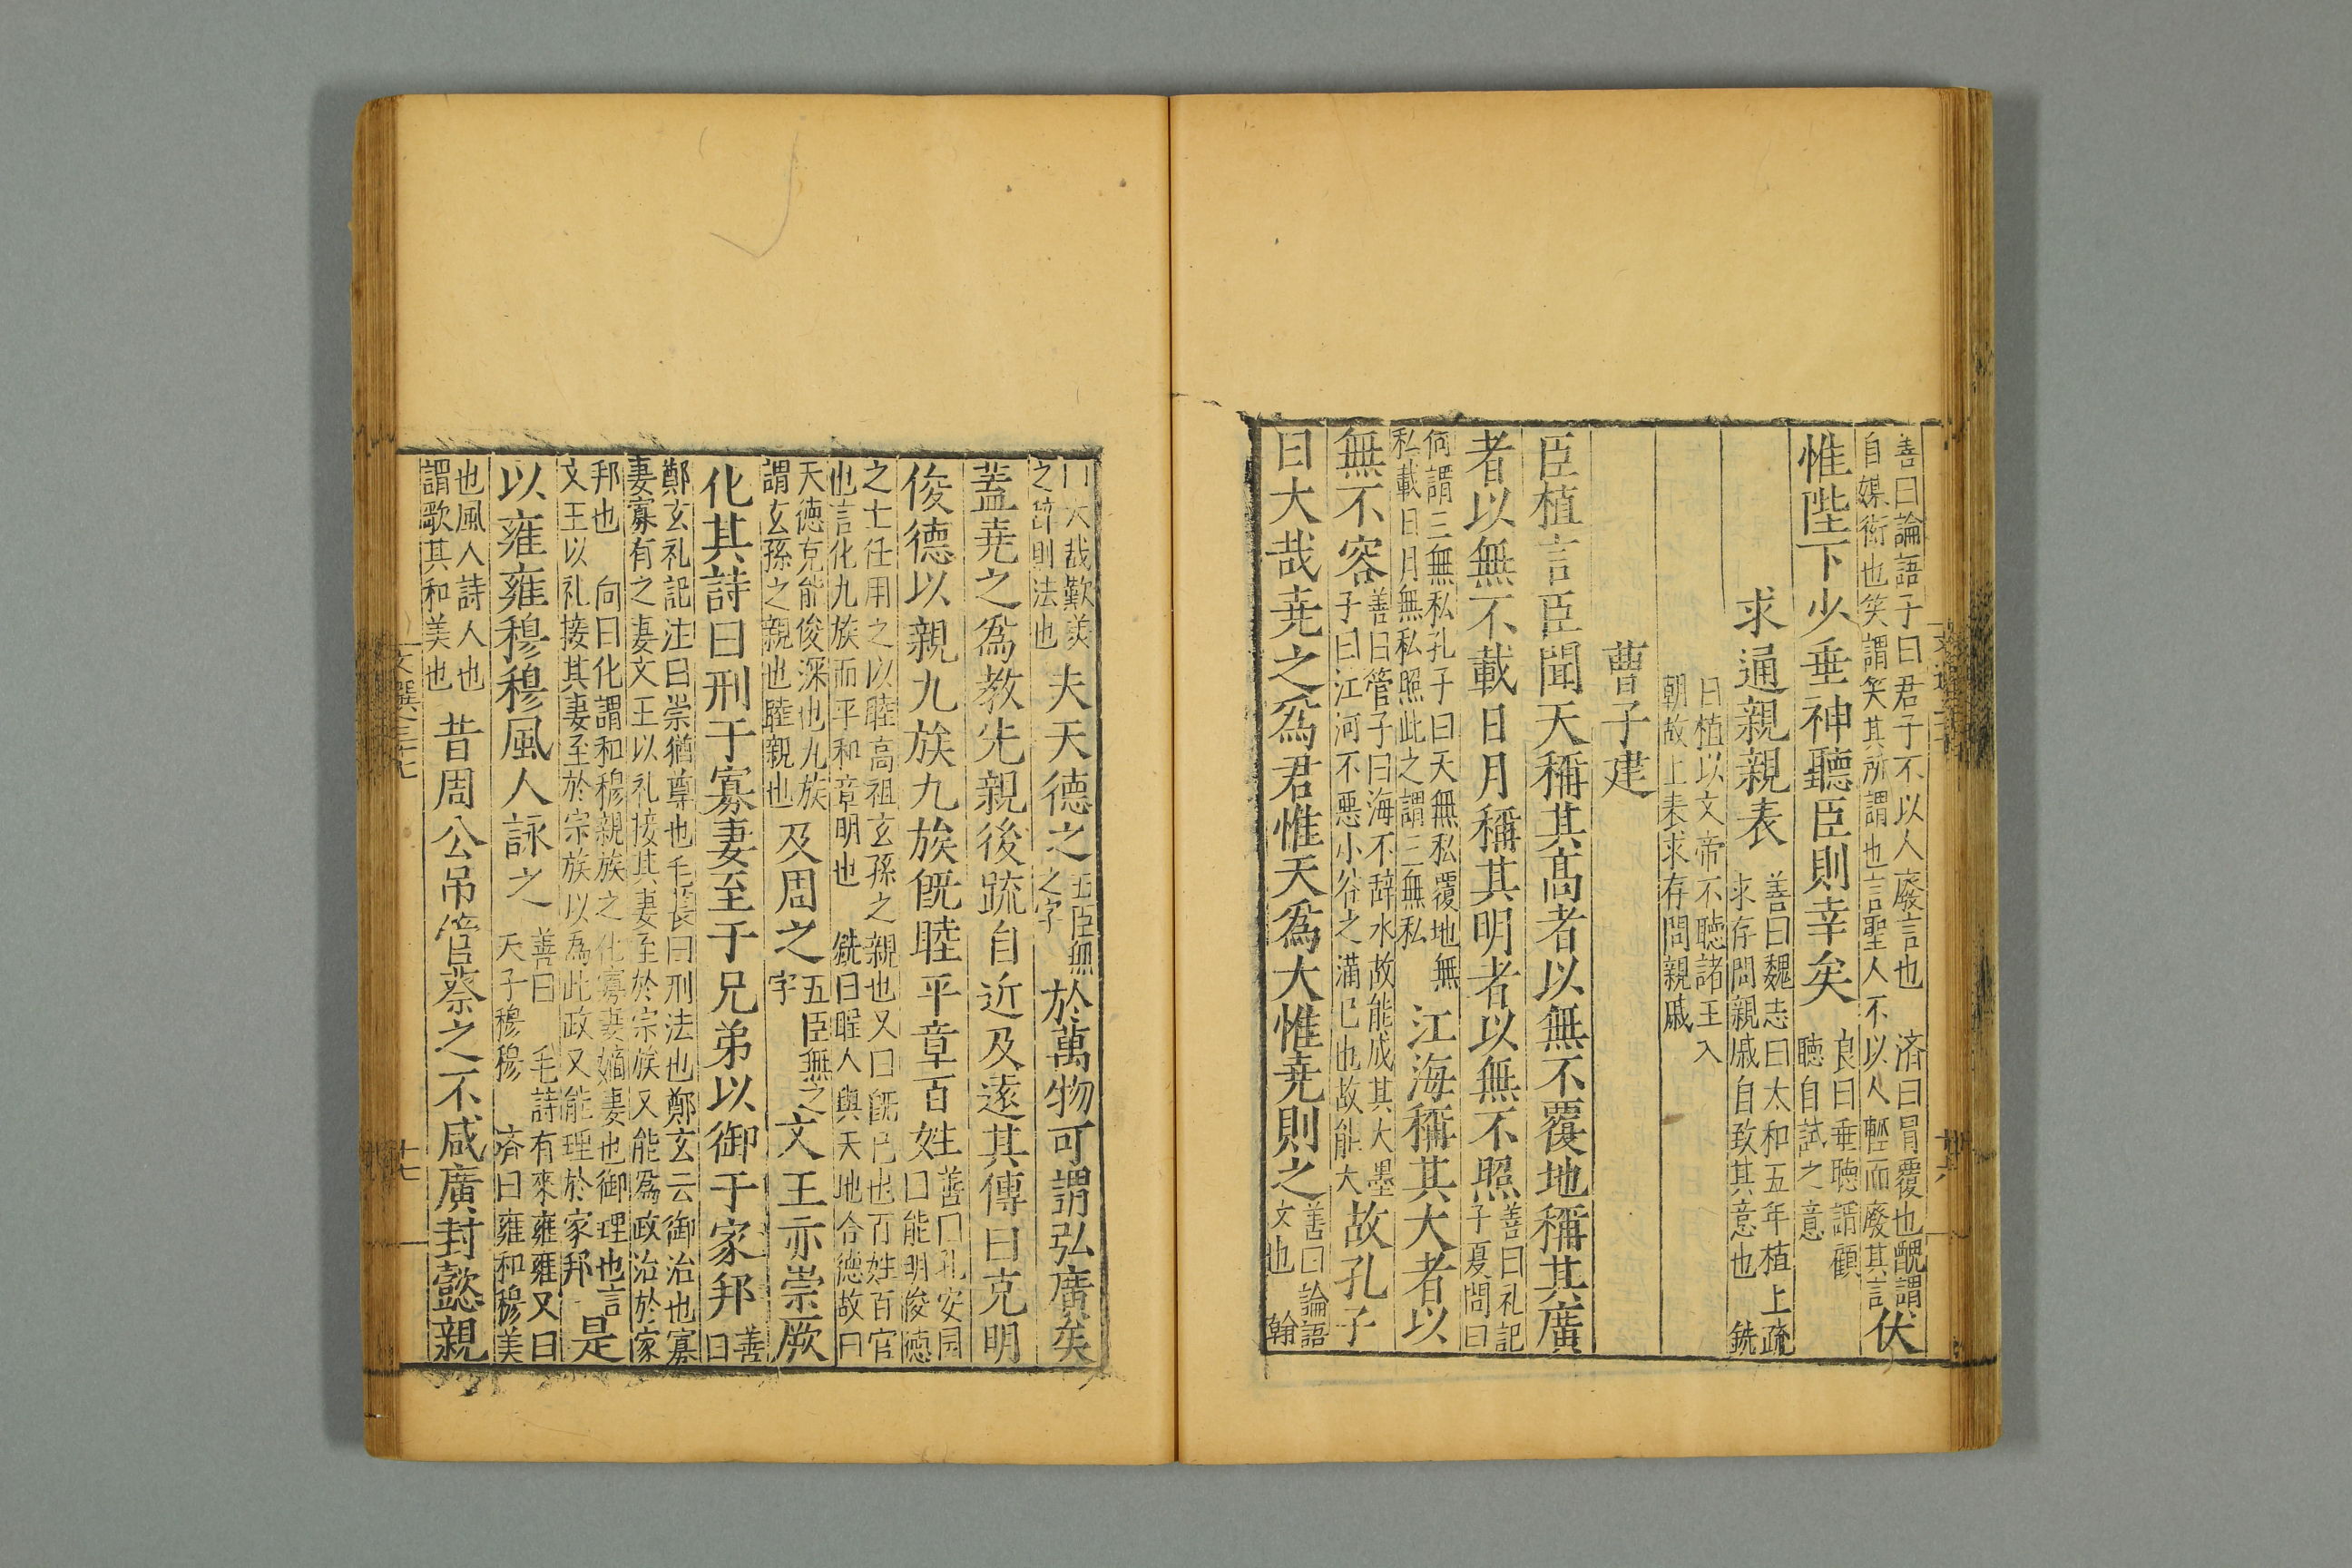 善曰論語子曰君子不以人廢言也　済曰冐覆也醜謂
自媒衒也笑謂笑其所謂也言聖人不以人輕而廢其言
伏
惟陛下少垂神聽臣則幸矣
良曰垂聴謂顧
聴自試之意
求通親親表
善曰魏志曰太和五年植上疏
求存問親戚自致其意也　銑
曰植以文帝不聴諸王入
朝故上表求存問親戚
曹子建
臣植言臣聞天稱其髙者以無不覆地稱其廣
者以無不載日月稱其明者以無不照
善曰礼記
子夏問曰
何謂三無私孔子曰天無私覆地無
私載日月無私照此之謂三無私
江海稱其大者以
無不容
善曰管子曰海不辞水故能成其大墨
子曰江河不悪小谷之滿已也故能大
故孔子
曰大哉尭之爲君惟天爲大惟尭則之
善曰論語
文也　翰
曰大哉歎美
之辞則法也
夫天德之
五臣無
之字
於萬物可謂弘廣矣
蓋尭之爲教先親後疏自近及逺其傳曰克明
俊德以親九族九族旣睦平章百姓
善曰孔安国
曰能明俊徳
之士任用之以睦高祖玄孫之親也又曰旣已也百姓百官
也言化九族而平和章明也　銑曰聖人與天地合德故曰
天徳克能俊深也九族
謂玄孫之親也睦親也
及周之
五臣無之
字
文王亦崇厥
化其詩曰刑于寡妻至于兄弟以御于家邦
善
曰
鄭玄礼記注曰崇猶尊也毛萇曰刑法也鄭玄云御治也寡
妻寡有之妻文王以礼接其妻至於宗族又能爲政治於家
邦也　向曰化謂和穆親族之化寡妻嫡妻也御理也言
文王以礼接其妻至於宗族以爲此政又能理於家邦
是
以雍雍穆穆風人詠之
善曰　毛詩有來雍雍又曰
天子穆穆　済曰雍和穆美
也風人詩人也
謂歌其和美也
昔周公吊管蔡之不咸廣封懿親
文選三十七
十七